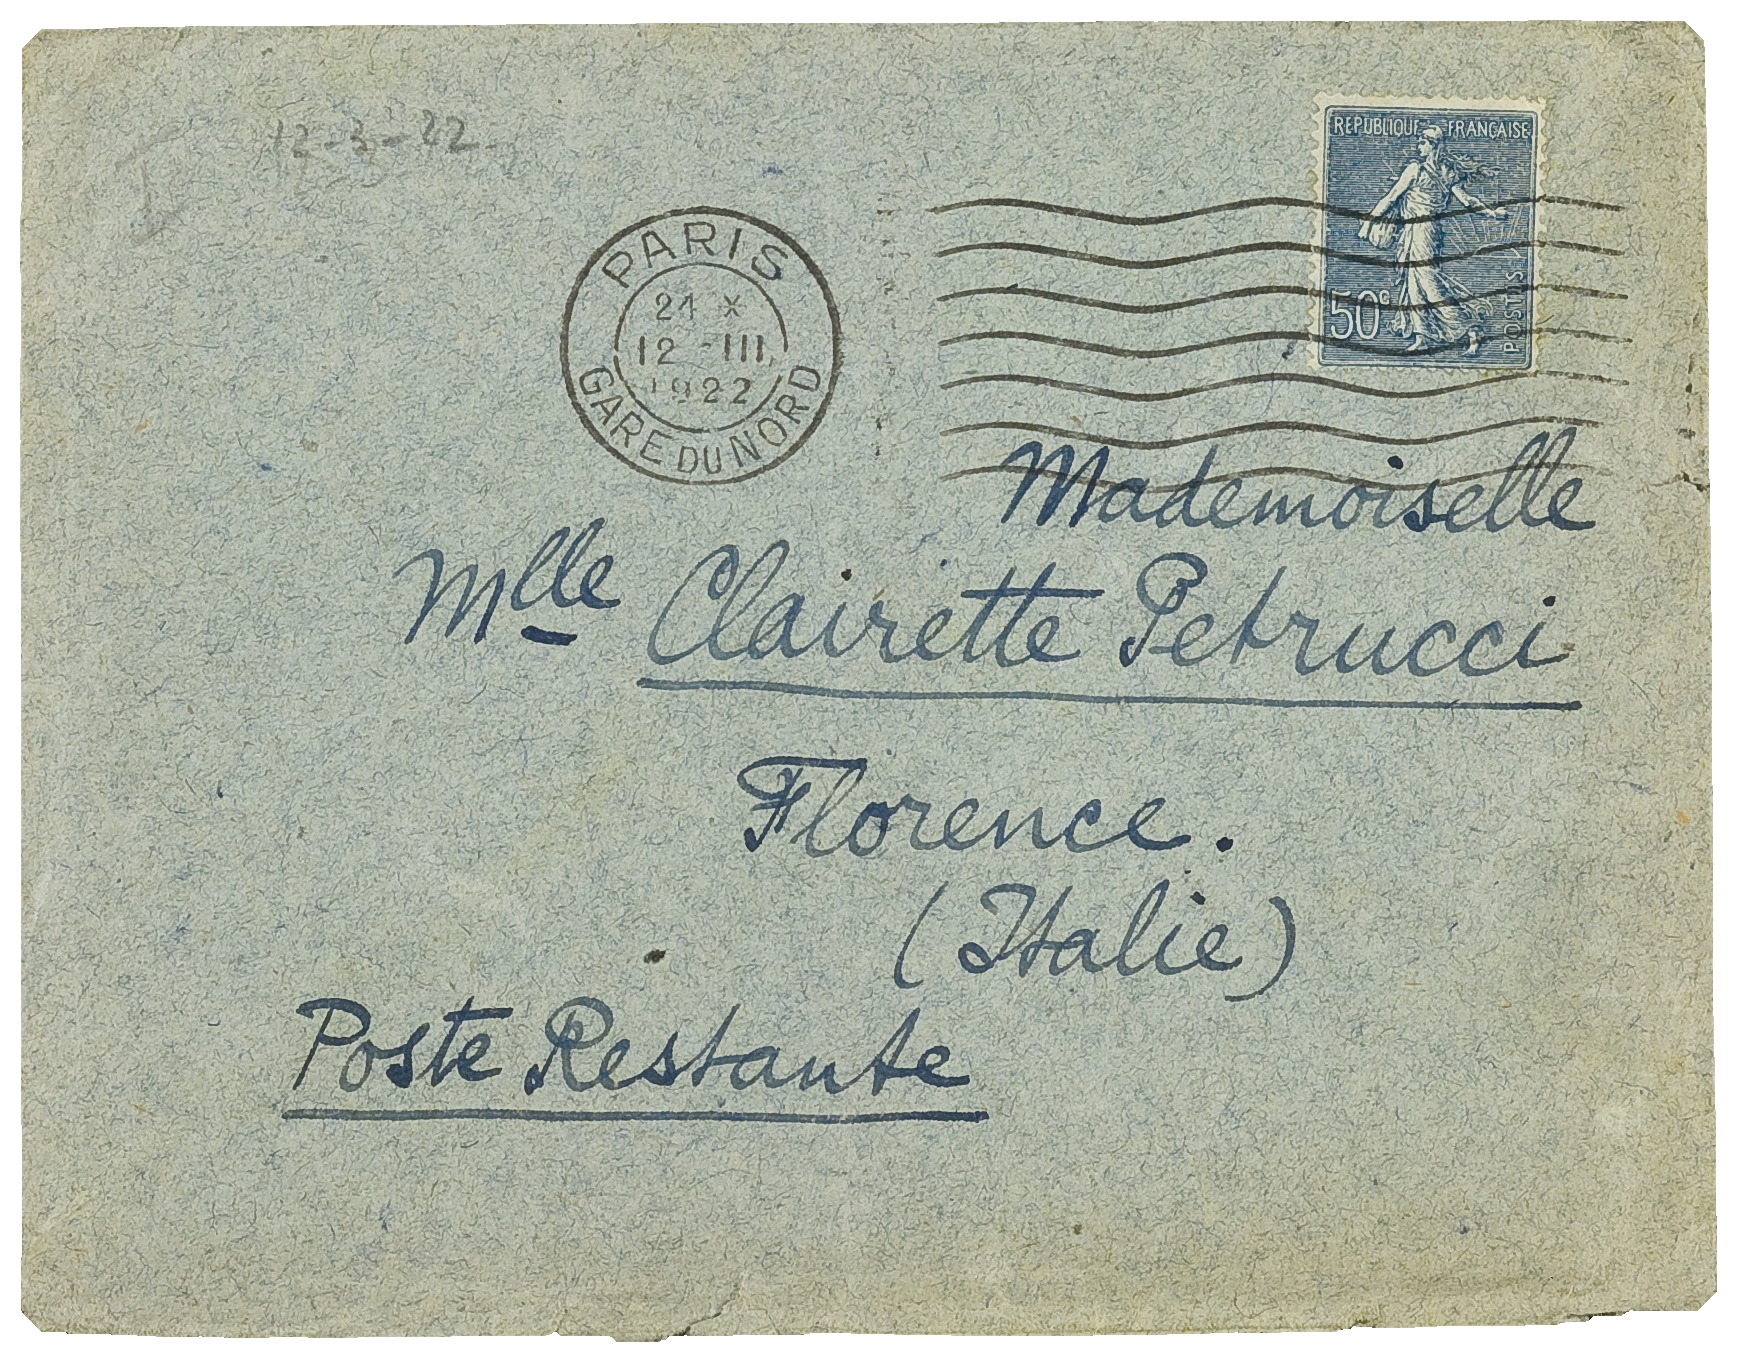 12-3-22
REPUBLIQUE FRANÇAISE
50c
POSTES
PARIS
21 *
12 -III
1922
GARE DU NORD
Mademoiselle
Mlle Clairette Petrucci
Florence.
(Italie)
Poste Restante